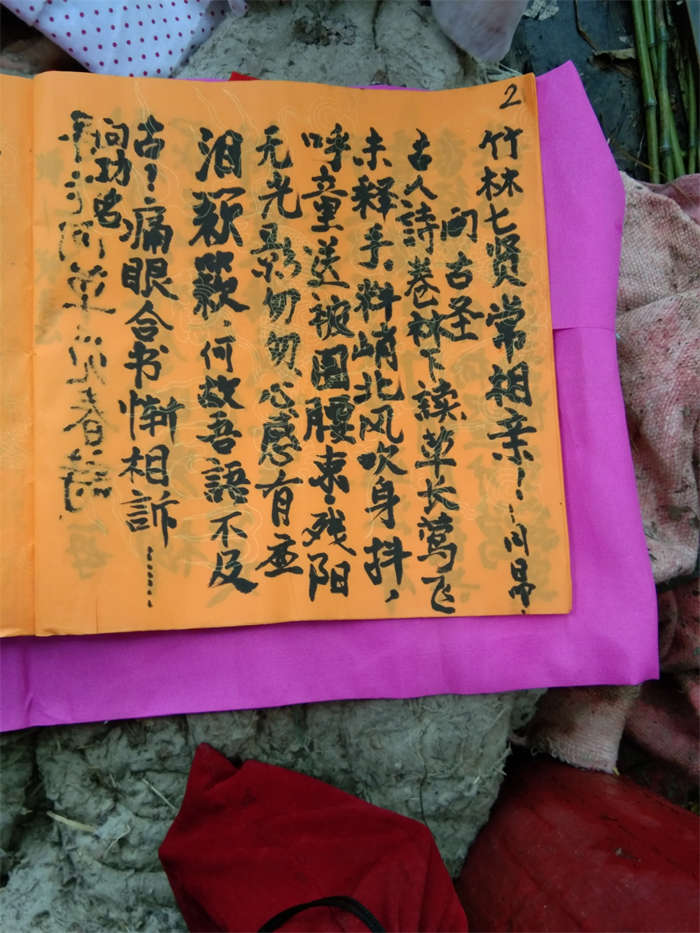 2
竹林七贤常相亲!
问古圣
古人詩卷林下读草长莺飞
未释手.料峭北风吹身抖,
呼童送被围腰束.残阳
无光影匆匆心感有
泪簌簌.何故吾語不及
古!痛眼合书惭相訴……
问功名
何草 春